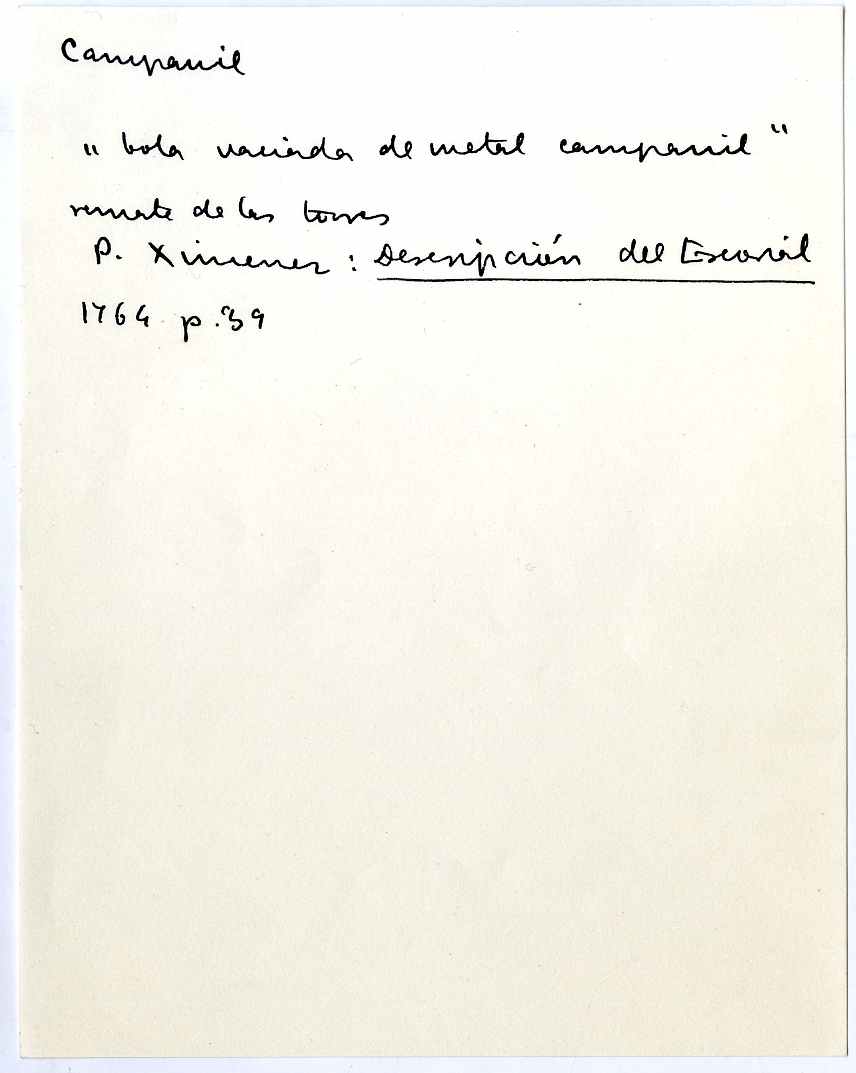 Campanil
"bola vaciada de metal campanil"
remate de las torres
P. Ximenez: Descripción del Escorial
1764 p.39